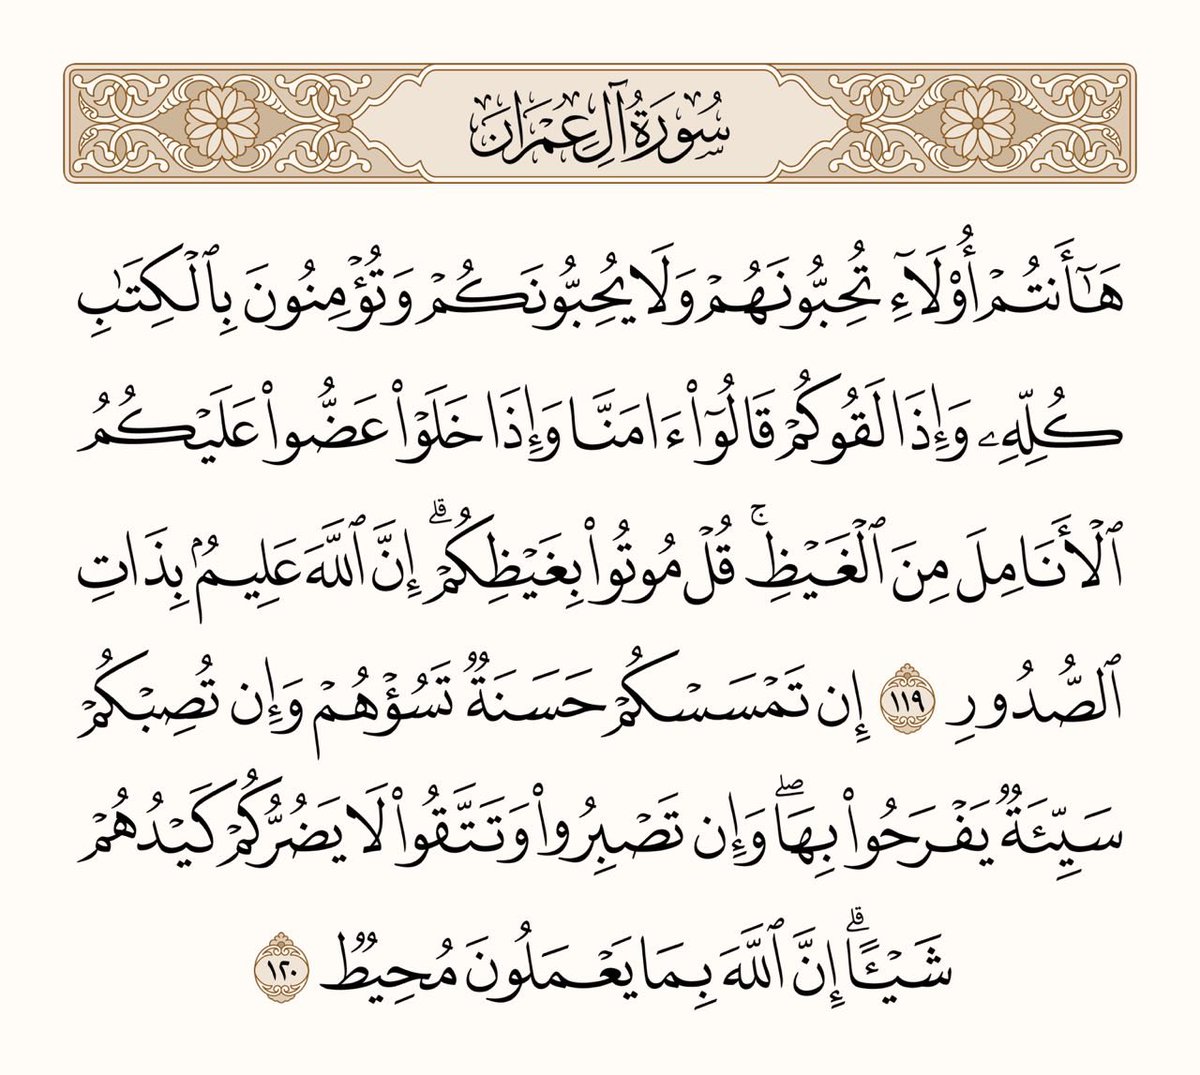 سُورَةُ آلِ عِمْرَان
هَٰٓأَنتُمْ أُوْلَآءِ تُحِبُّونَهُمْ وَلَا يُحِبُّونَكُمْ وَتُؤْمِنُونَ بِٱلْكِتَٰبِ
كُلِّهِۦ وَإِذَا لَقُوكُمْ قَالُوٓاْ ءَامَنَّا وَإِذَا خَلَوْاْ عَضُّواْ عَلَيْكُمُ
ٱلْأَنَامِلَ مِنَ ٱلْغَيْظِۚ قُلْ مُوتُواْ بِغَيْظِكُمْۗ إِنَّ ٱللَّهَ عَلِيمُۢ بِذَاتِ
ٱلصُّدُورِ ١١٩ إِن تَمْسَسْكُمْ حَسَنَةٌ تَسُؤْهُمْ وَإِن تُصِبْكُمْ
سَيِّئَةٌ يَفْرَحُواْ بِهَاۖ وَإِن تَصْبِرُواْ وَتَتَّقُواْ لَا يَضُرُّكُمْ كَيْدُهُمْ
شَيْـًٔاۗ إِنَّ ٱللَّهَ بِمَا يَعْمَلُونَ مُحِيطٌ ١٢٠